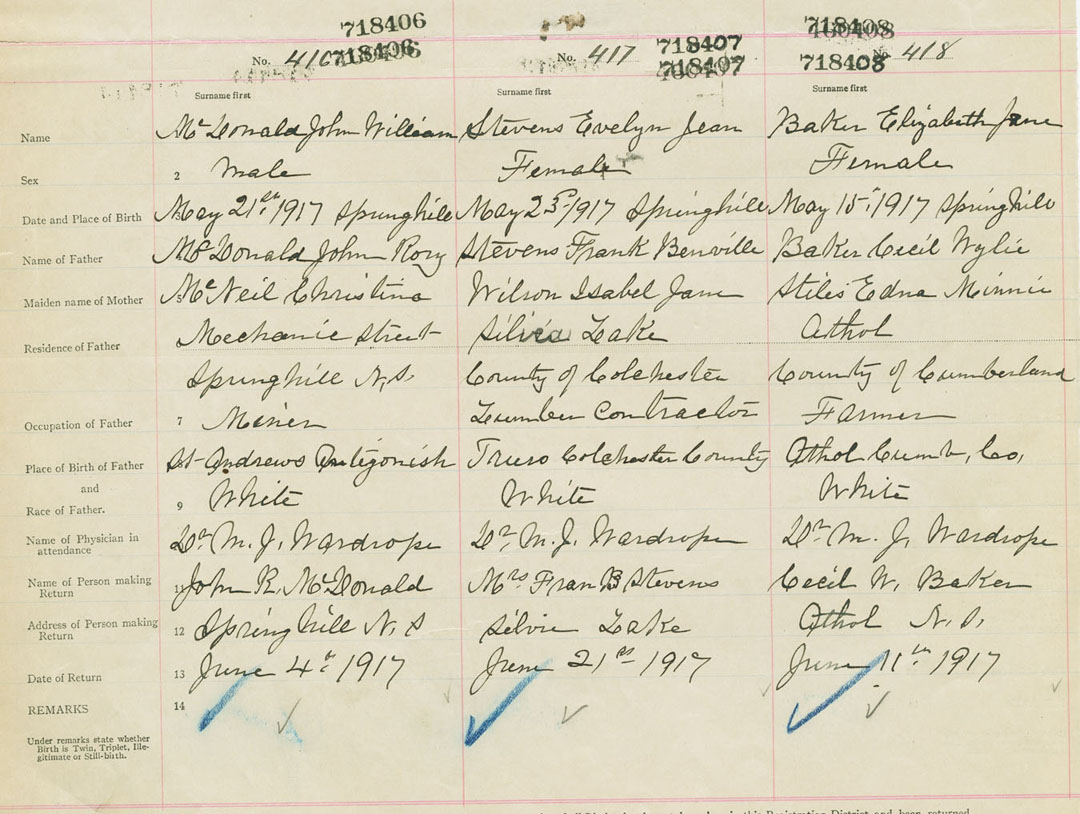 718406
No. 416 718406
No. 417 718407
718407
718408
718408 No. 418
Surname first Surname first Surname first
Name McDonald John William Stevens Evelyn Jean Baker Elizabeth Jane
Sex 2 Male Female Female
Date and Place of Birth May 21st 1917 Springhill May 23rd 1917 Springhill May 15th 1917 Springhill
Name of Father McDonald John Rory Stevens Frank Benville Baker Cecil Wylie
Maiden name of Mother McNeil Christina Wilson Isabel Jane Stiles Edna Minnie
Residence of Father Mechanic Street Silvica Lake Athol
Springhill N.S. County of Colchester County of Cumberland
Occupation of Father 7 Miner Lumber Contractor Farmer
Place of Birth of Father St Andrews Antigonish Truro Colchester County Athol Cumb, Co,
and
Race of Father. 9 White White White
Name of Physician in attendance Dr. M. J. Wardrope Dr. M. J. Wardrope Dr. M. J. Wardrope
Name of Person making Return 11 John R. McDonald Mrs Fran B Stevens Cecil W. Baker
Address of Person making Return 12 Springhill N.S Silvie Lake Athol N.S.
Date of Return 13 June 4th 1917 June 21st 1917 June 11th 1917
REMARKS 14
Under remarks state whether
Birth is Twin, Triplet, Ille-
gitimate or Still-birth.
in this Registration District and been returned